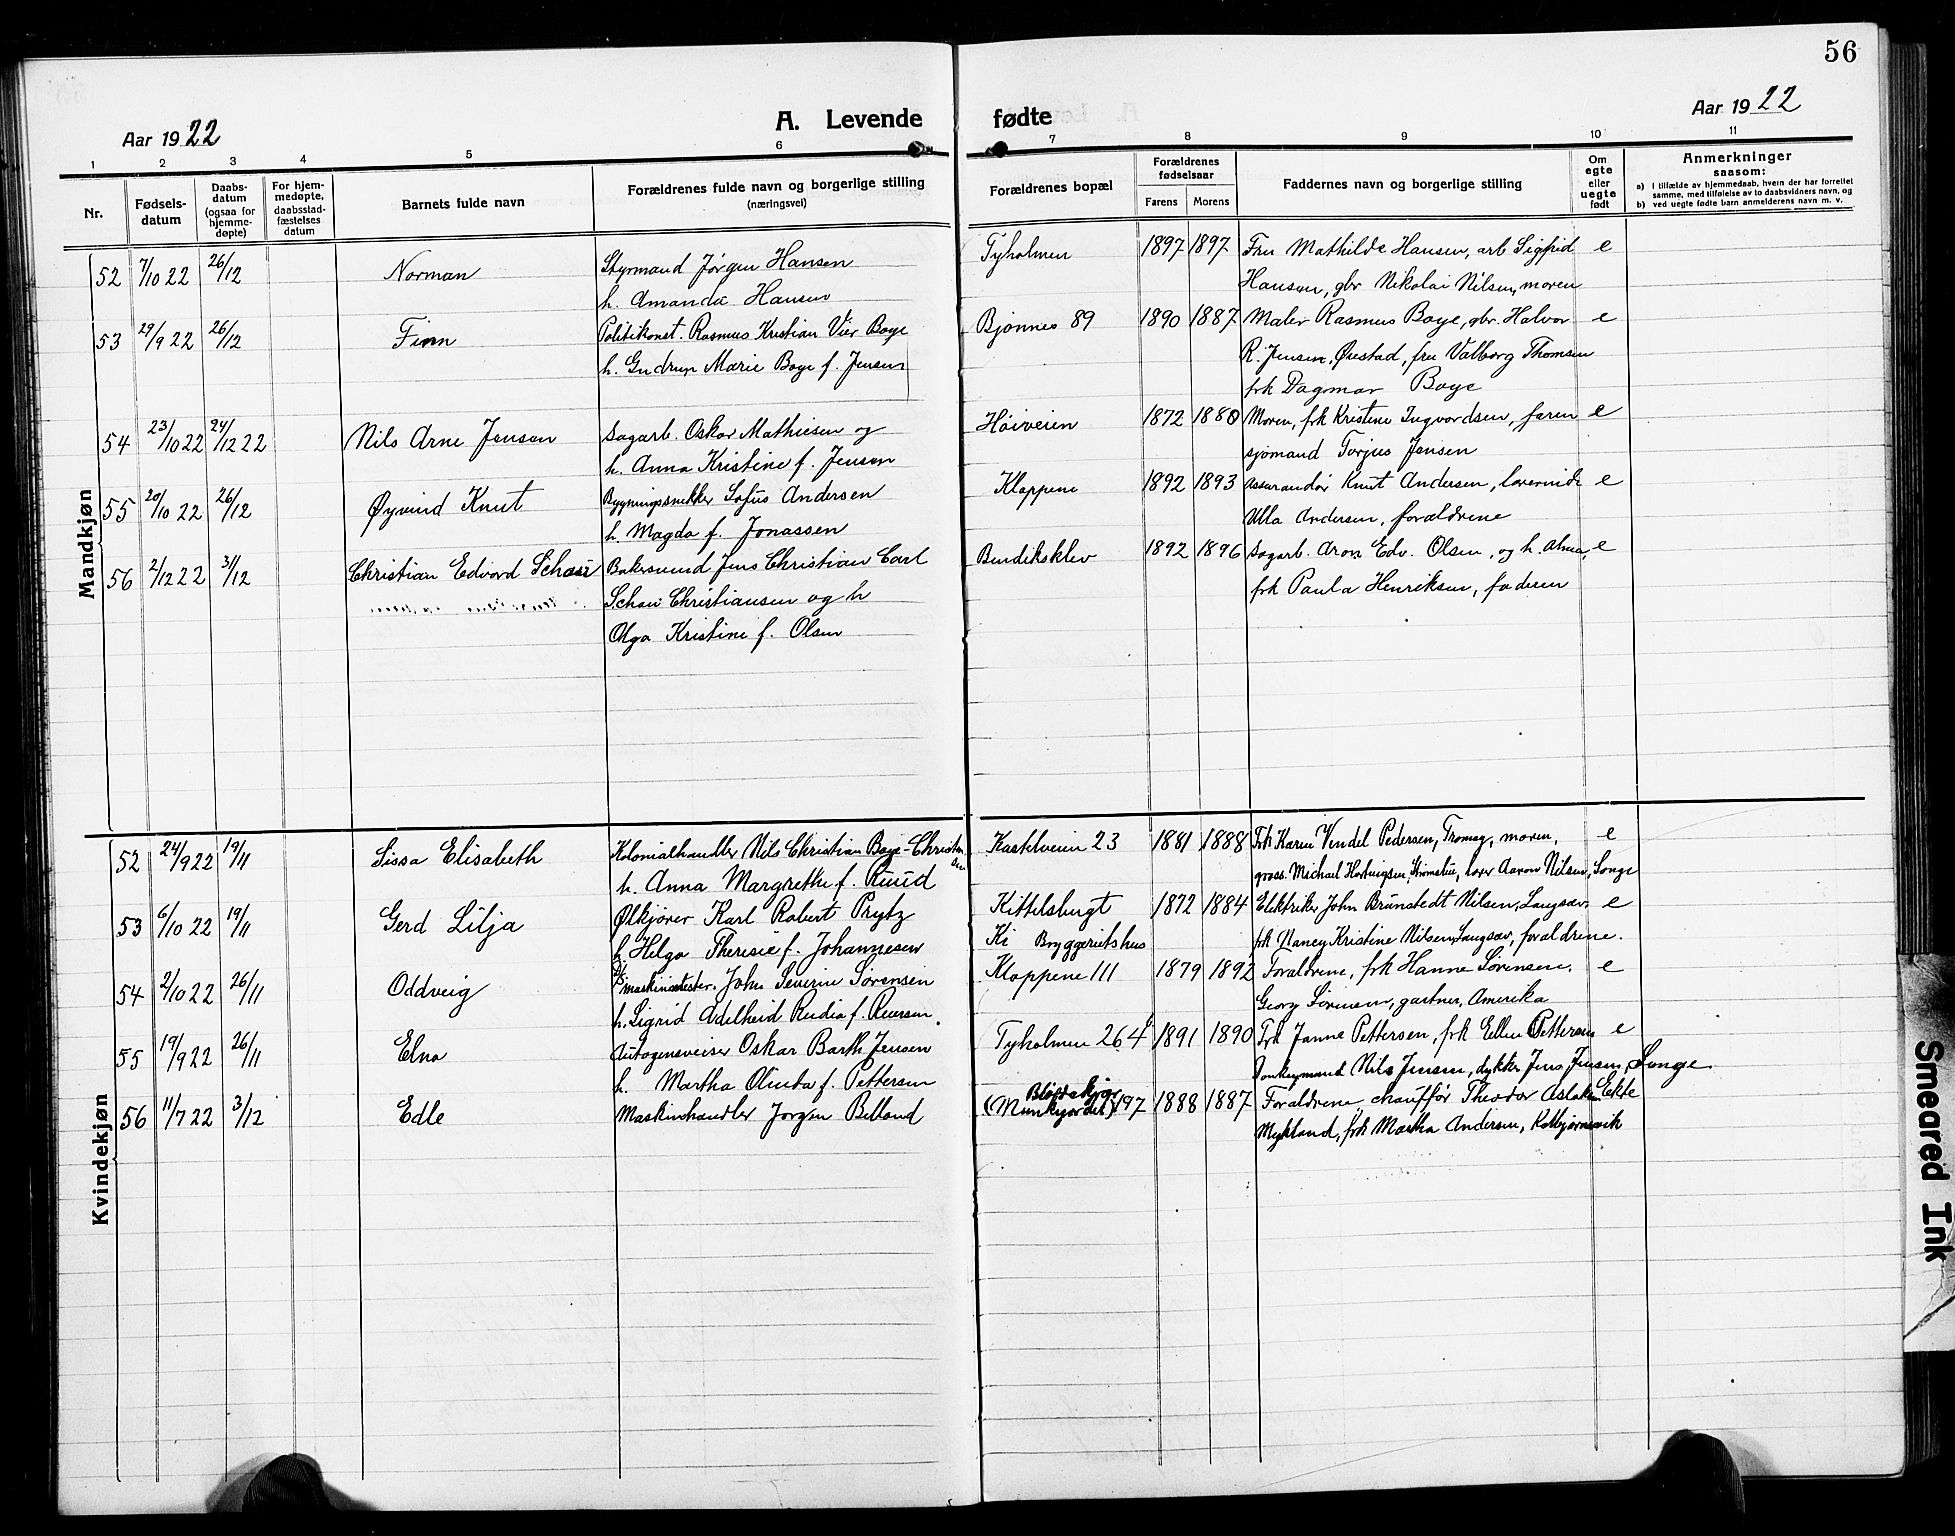 56
Aar 1922
A. Levende fødte
Aar 1922
1 2 3 4 5 6 7 8 9 10 11
Nr.
Fødsels-
datum
Daabs-
datum
(ogsaa for
hjemme-
døpte)
For hjem-
medøpte,
daabsstad-
fæstelses
datum
Barnets fulde navn
Forældrenes fulde navn og borgerlige stilling
(næringsvei)
Forældrenes bopæl
Forældrenes
fødselsaar
Farens Morens
Faddernes navn og borgerlige stilling
Om
egte
eller
uegte
født
Anmerkninger
saasom:
a) i tilfælde av hjemmedaab, hvem der har forrettet
samme, med tilføielse av to daabsvidners navn, og
b) ved uegte fødte barn anmelderens navn m. v.
Mandkjøn
52 7/10 22 26/12 Norman Styrmand Jørgen Hansen Tyholmen 1897 1897 Fru Mathilde Hansen, arb Sigfrid e
h. Amanda Hansen Hansen, gbr Nikolai Nilsen, moren
53 29/9 22 26/12 Finn Politikonst. Rasmus Kristian Vier Boye Bjønnes 89 1890 1887 Maler Rasmus Boye, gbr. Halvor e
h. Gudrun Marie Boye f. Jensen R. Jensen, Ørestad, fru Valborg Thomsen
frk Dagmar Boye
54 23/10 22 24/12 22 Nils Arne Jensen Sagarb. Oskar Mathiesen og Høiveien 1872 1880 Moren, frk Kristine Ingvordsen, faren e
h. Anna Kristine f. Jensen sjømand Torjus Jensen
55 20/10 22 26/12 Øyvind Knut Bygningssnekker Sofus Andersen Kloppene 1892 1893 Assurandør Knut Andersen, lærerinde e
h. Magda f. Jonassen Ulla Andersen, forældrene
56 2/12 22 31/12 Christian Edvard Schau Bakersvend Jens Christian Carl Bendiksklev 1892 1896 Sagarb. Aron Edv. Olsen, og h. Alma, e
Schau Christiansen og h frk Paula Henriksen, faderen
Olga Kristine f. Olsen
Kvindekjøn
52 24/9 22 19/11 Sissa Elisabeth Kolonialhandler Nils Christian Boye-Christensen Kastelveien 23 1881 1888 Frk Karen Vendel Pedersen, Tromøy, moren, e
h. Anna Margrethe f. Ruud gross. Michael Hartvigsen, Strømsbu, lærer Aaron Nilsen, Songe
53 6/10 22 19/11 Gerd Lilja Ølkjører Karl Robert Prytz Kittelsbugt 1872 1884 Elektriker John Brunstedt Nilsen, Langsæv, e
h. Helga Theresie f. Johannesen Ki Bryggeriets hus frk Nancy Kristine Nilsen, Langsæv, forældrene.
54 2/10 22 26/11 Oddveig maskinmester. John Severin Sørensen Kloppene 111 1879 1892 Forældrene, frk Hanne Sørensen. e
h. Sigrid Adelheid Rudia f. Reiersen. Georg Sørensen, gartner, Amerika
55 19/9 22 26/11 Elna Autogensveiser Oskar Barth Jensen Tyholmen 264 1891 1890 Frk Janne Pettersen, frk Ellen Pettersen e
h. Martha Olinda f. Pettersen Donkeymand Nils Jensen, dykker Jens Jensen, Songe.
56 11/7 22 3/12 Edle Maskinhandler Jørgen Belland Blødekjær (Munkejordet) 197 1888 1887 Forældrene, chauffør Theodor Aslaksen Ekte
Mykland, frk Martha Andersen, Kolbjørnsvik
Smeared Ink